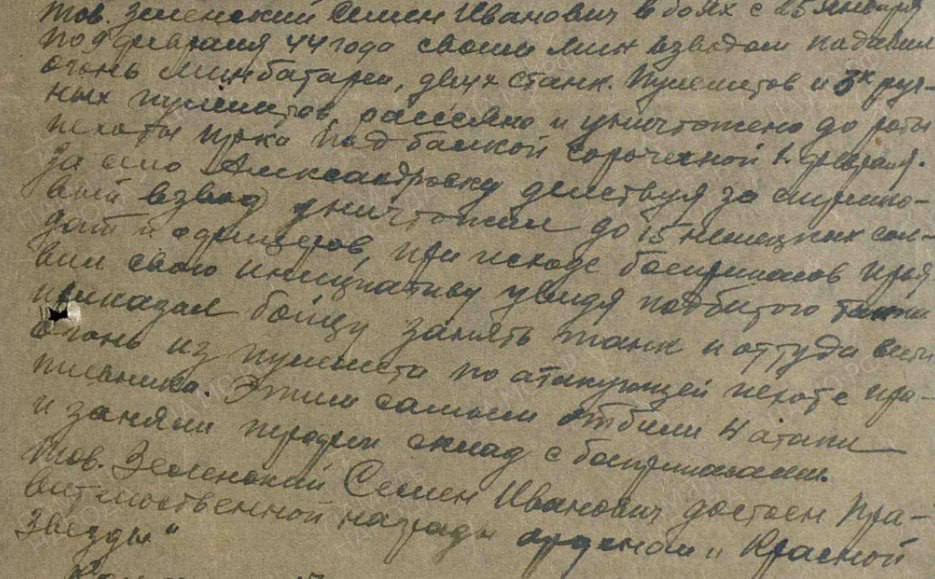 тов. Зеленский Семен Иванович в боях с 25 января
по 9 февраля 44 года своим мин взводом подавил
огонь минбатареи, двух станк. пулеметов и 3х руч-
ных пулеметов, рассеяно и уничтожено до роты
пехоты пр-ка под балкой Сорочечной 1 февраля.
За село Александровку действуя за стрелко-
вый взвод уничтожил до 15 немецких сол-
дат и офицеров, при исходе боеприпасов проя
вил свою инициативу увидя подбитого танка
приказал бойцу занять танк и оттуда вести
огонь из пулемета по атакующей пехоте про-
тивника. Этим самым отбили 4 атаки
и заняли трофеи склад с боеприпасами.
Тов. Зеленский Семен Иванович достоен пра-
вительственной награды орденом „Красной
Звезды"